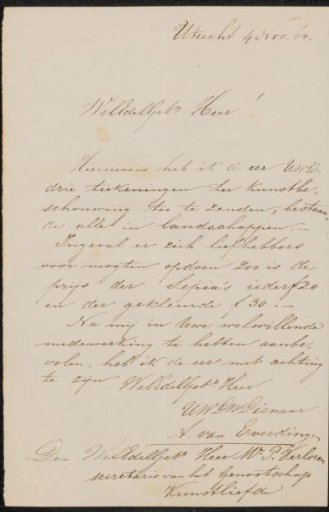 Utrecht 4 Nov. 60.
WelEdelGeb. Heer!
Hiernevens heb ik de eer UwE.
drie teekeningen ter Kunstbe-
schouwing toe te zenden, bestaan-
de alle in landschappen.—
Ingeval er zich liefhebbers
voor mogten opdoen zoo is de
prijs der Sepia's ieder f 20
en der gekleurde f 30.—
Na mij in Uwe welwillende
medewerking te hebben aanbe-
volen, heb ik de eer met achting
te zijn WelEdelGeb. Heer
UwEdw Dienaar
A. van Everdingen
Den WelEdelGeb. Heer Mr. P. Verloren
secretaris van het Genootschap
Kunstliefde